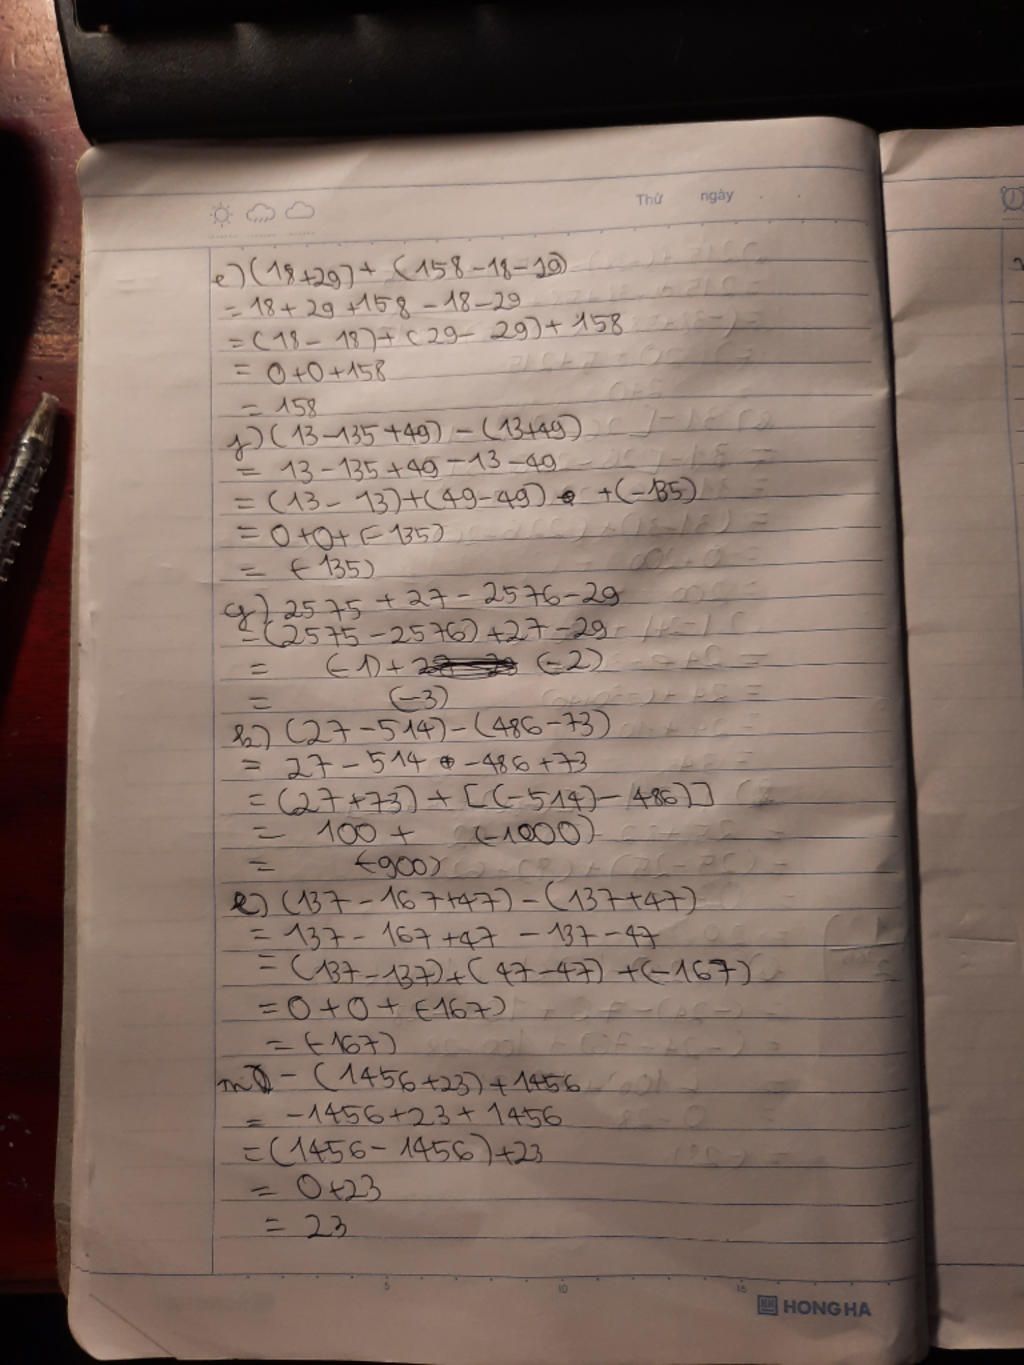 Thứ ngày
e) (18+29) + (158-18-29)
= 18+29+158-18-29
= (18-18)+(29-29)+158
= 0+0+158
= 158
f) (13-135+49)-(13+49)
= 13-135+49-13-49
= (13-13)+(49-49) +(-135)
= 0+0+(-135)
= (-135)
g) 2575+27-2576-29
= (2575-2576)+27-29
= (-1)+ (-2)
= (-3)
h) (27-514)-(486-73)
= 27-514 -486+73
= (27+73)+[(-514)-486)]
= 100 + (-1000)
= (-900)
l) (137-167+47)-(137+47)
= 137-167+47 -137-47
= (137-137)+(47-47) +(-167)
= 0+0+(-167)
= (-167)
m) -(1456+23)+1456
= -1456+23+1456
= (1456-1456)+23
= 0+23
= 23
5 10 15
HONG HA